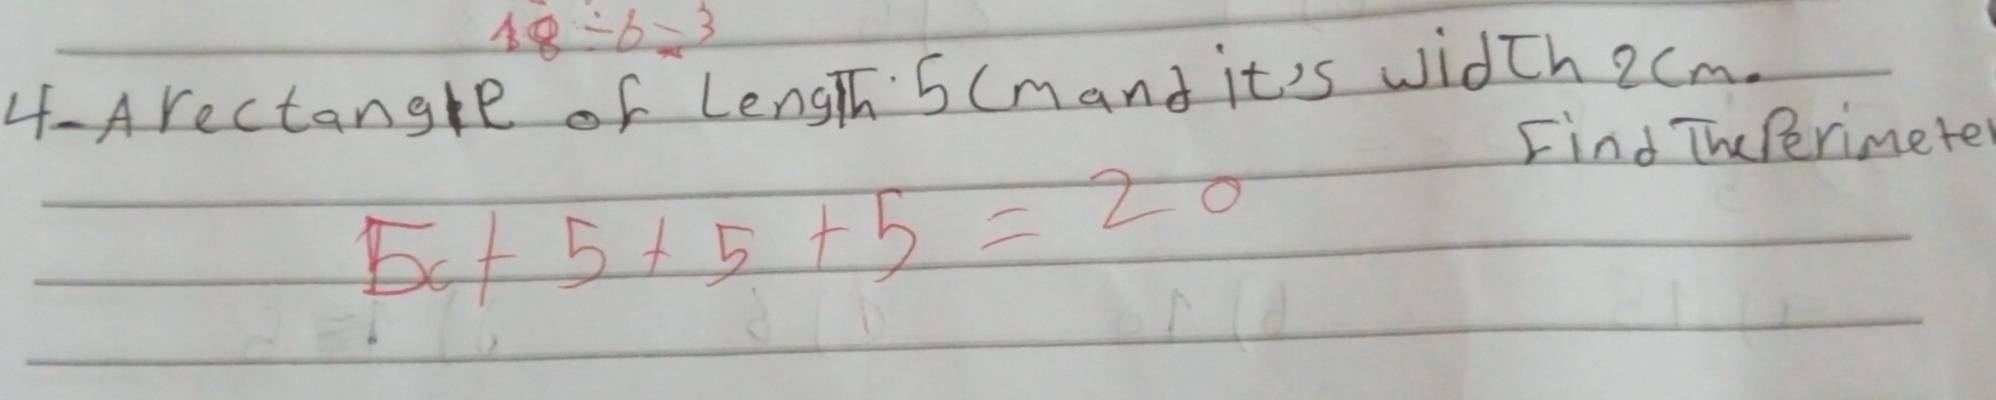 18 ÷ 6 = 3
4- A rectangle of Length 5 Cm and it's width 2 Cm.
Find The Perimeter
5 + 5 + 5 + 5 = 20